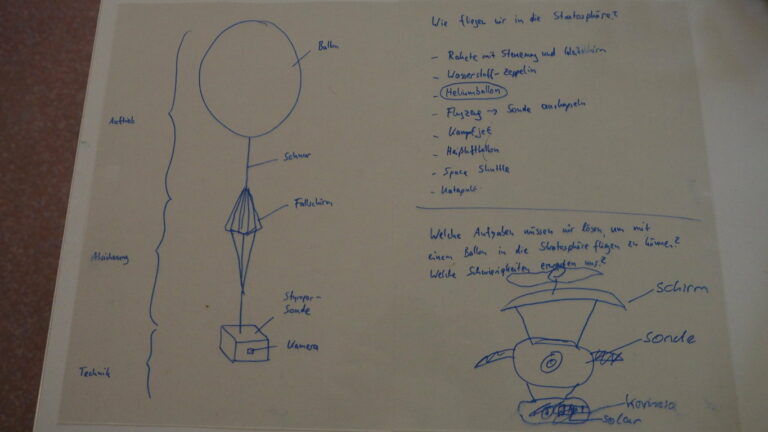 Ballon
Auftrieb
Schnur
Fallschirm
Absicherung
Styropor-
Sonde
Kamera
Technik
Wie fliegen wir in die Stratosphäre?
- Rakete mit Steuerung und
- Wasserstoff-Zeppelin
- Heliumballon
- Flugzeug → Sonde auskapseln
- Kampfjet
- Heißluftballon
- Space Shuttle
- Katapult
Welche Aufgaben müssen wir lösen, um mit
einem Ballon in die Stratosphäre fliegen zu können?
Welche Schwierigkeiten erwarten uns?
Schirm
Sonde
Kamera
solar